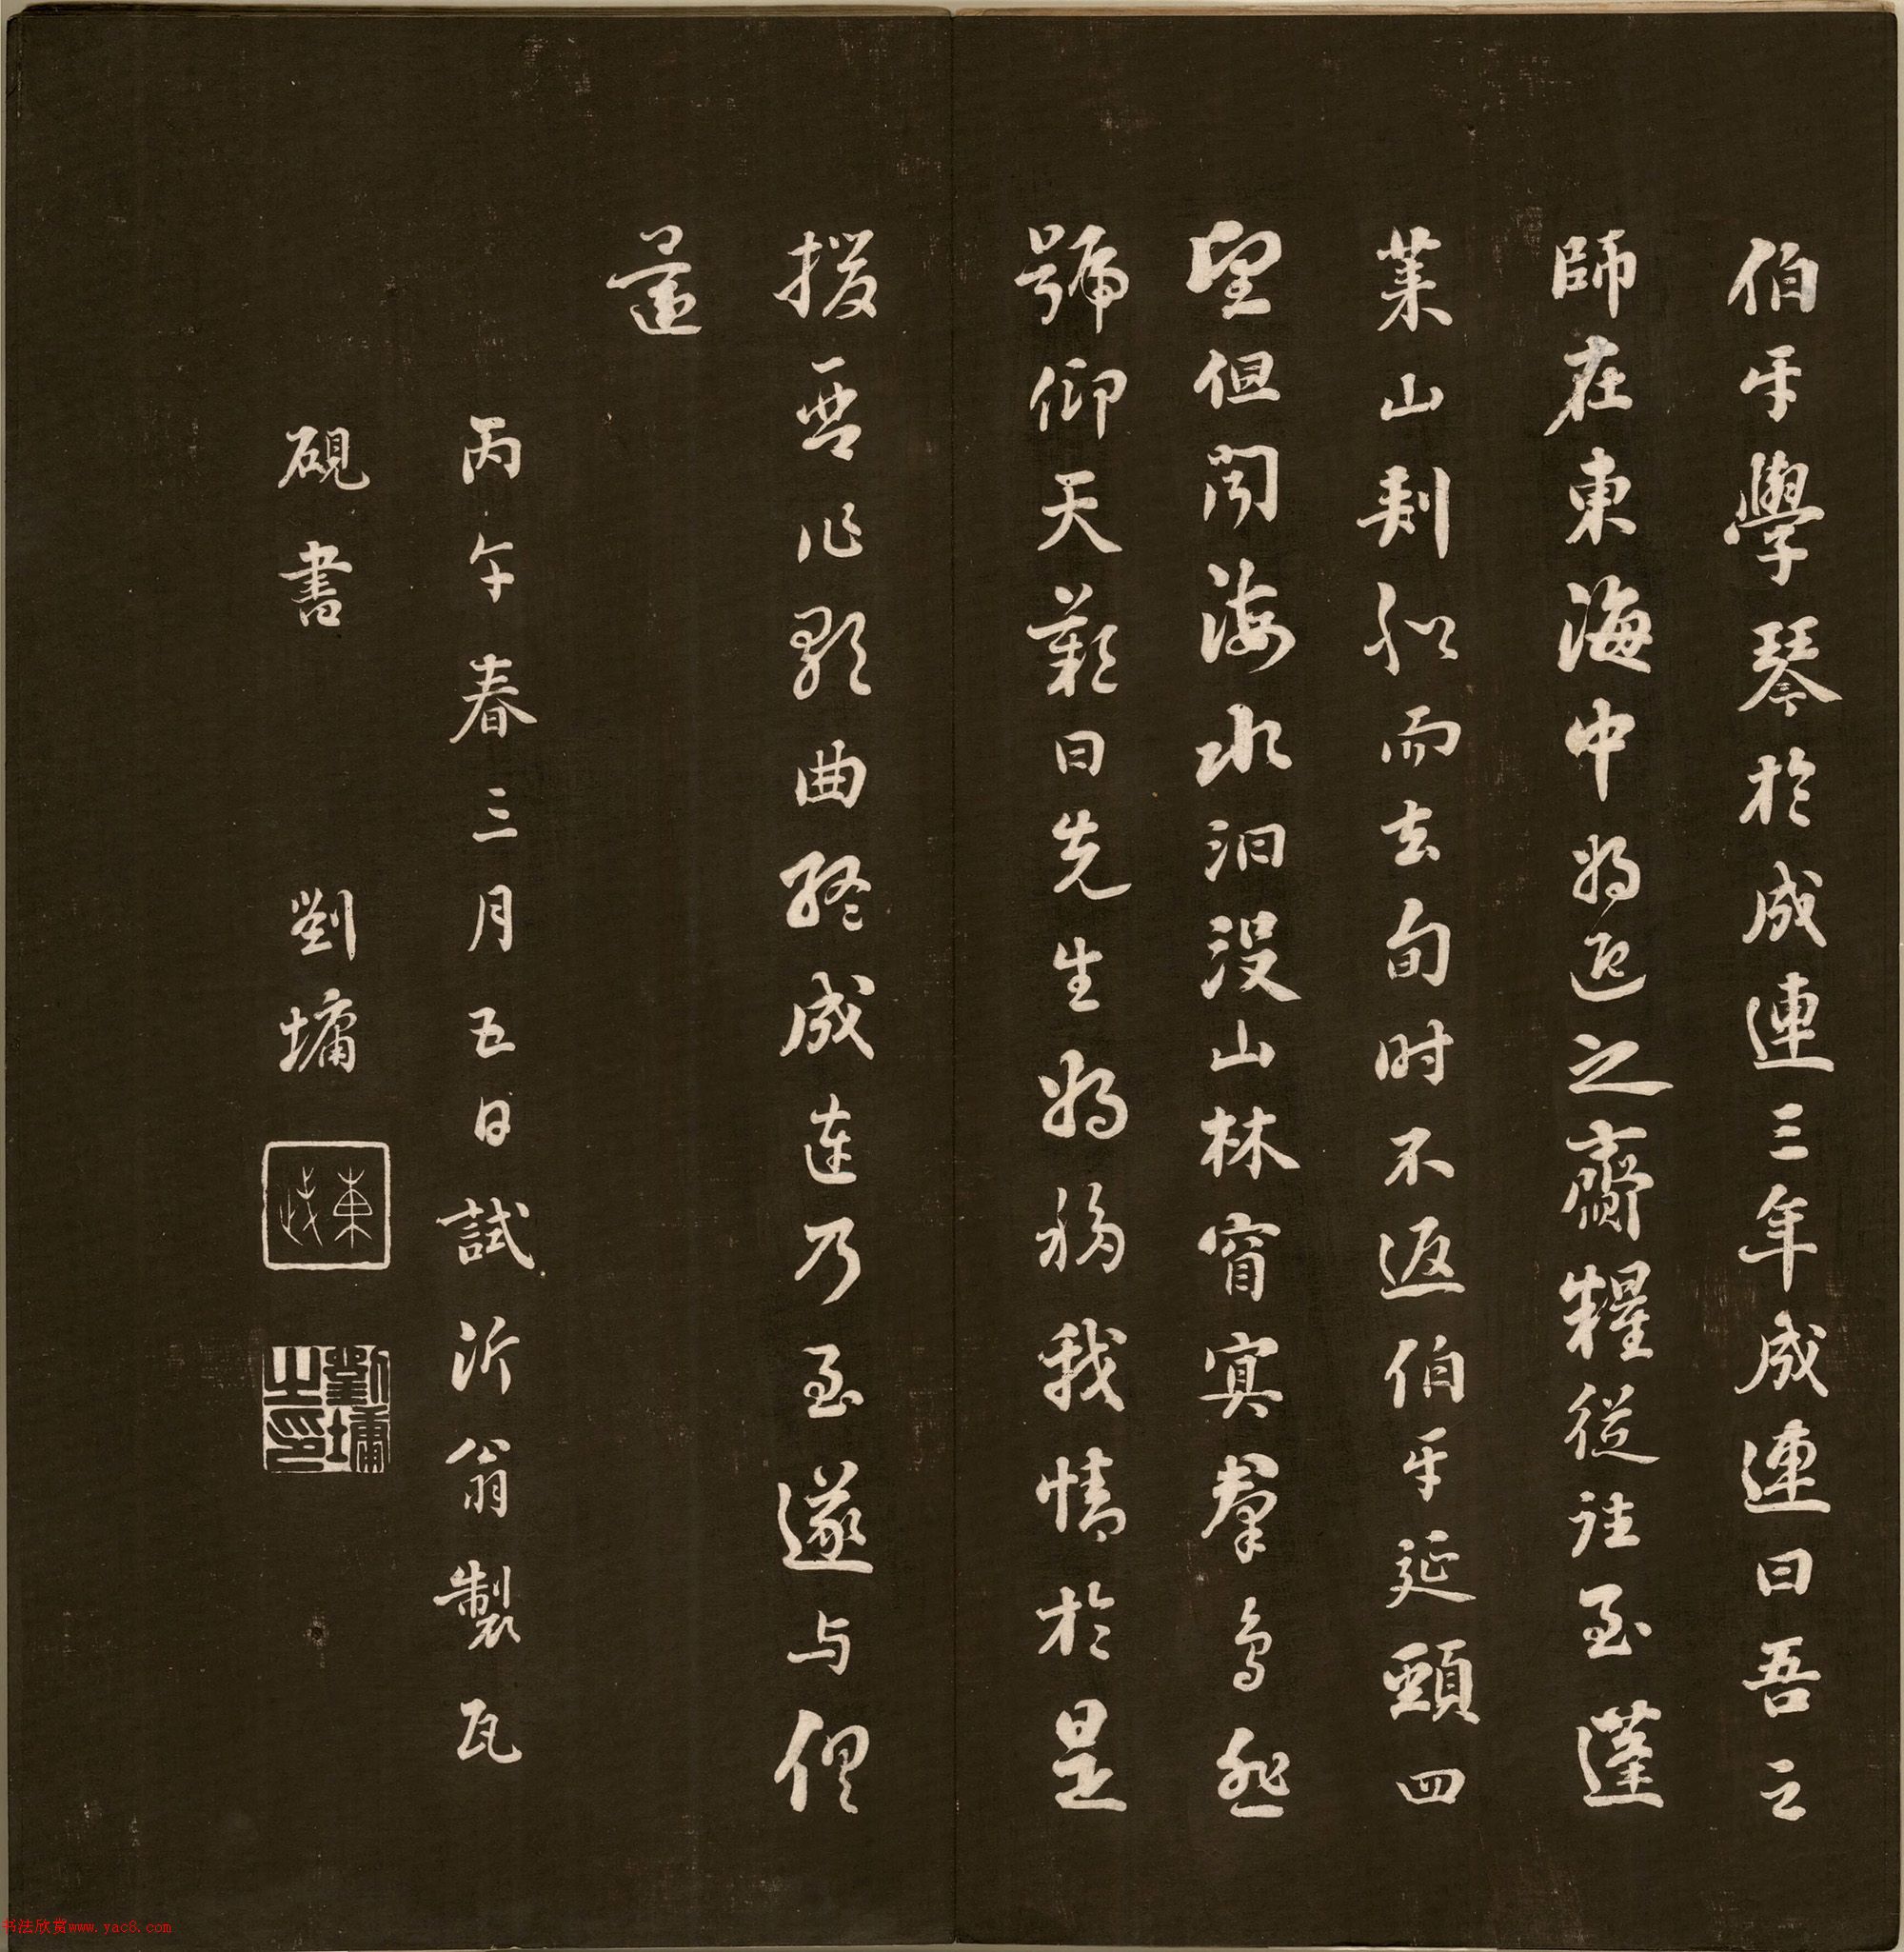 伯牙學琴於成連三年成連曰吾之
師在東海中將迎之齎糧從往至蓬
萊山刺船而去旬時不返伯牙延頸四
望但聞海水汩没山林窅冥羣鳥悲
號仰天歎曰先生將移我情於是
援琴作歌曲終成連乃至遂与俱
還
丙午春三月五日試沂翁製瓦
硯書 劉墉
東武
劉墉之印
书法欣赏www.yac8.com